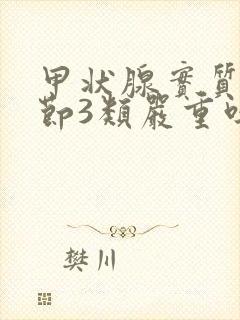 甲状腺實質
節3類嚴重
樊川